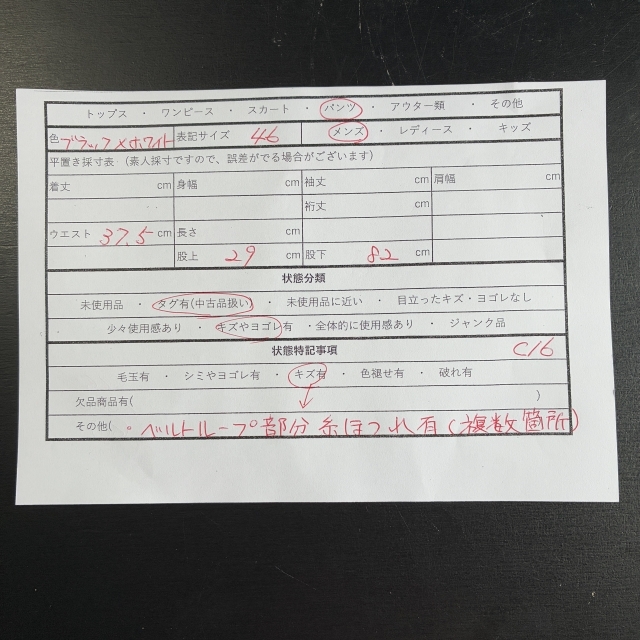 トップス ・ ワンピース ・ スカート ・ パンツ ・ アウター類 ・ その他
色 ブラック×ホワイト 表記サイズ 46 メンズ ・ レディース ・ キッズ
平置き採寸表 (素人採寸ですので、誤差がでる場合がございます)
着丈 cm 身幅 cm 袖丈 cm 肩幅 cm
裄丈 cm
ウエスト 37.5 cm 長さ cm
股上 29 cm 股下 82 cm
状態分類
未使用品 ・ タグ有(中古品扱い) ・ 未使用品に近い ・ 目立ったキズ・ヨゴレなし
少々使用感あり ・ キズやヨゴレ有 ・全体的に使用感あり ・ ジャンク品
状態特記事項 C16
毛玉有 ・ シミやヨゴレ有 ・ キズ有 ・ 色褪せ有 ・ 破れ有
欠品商品有( )
その他( ・ベルトループ部分 糸ほつれ有(複数箇所)